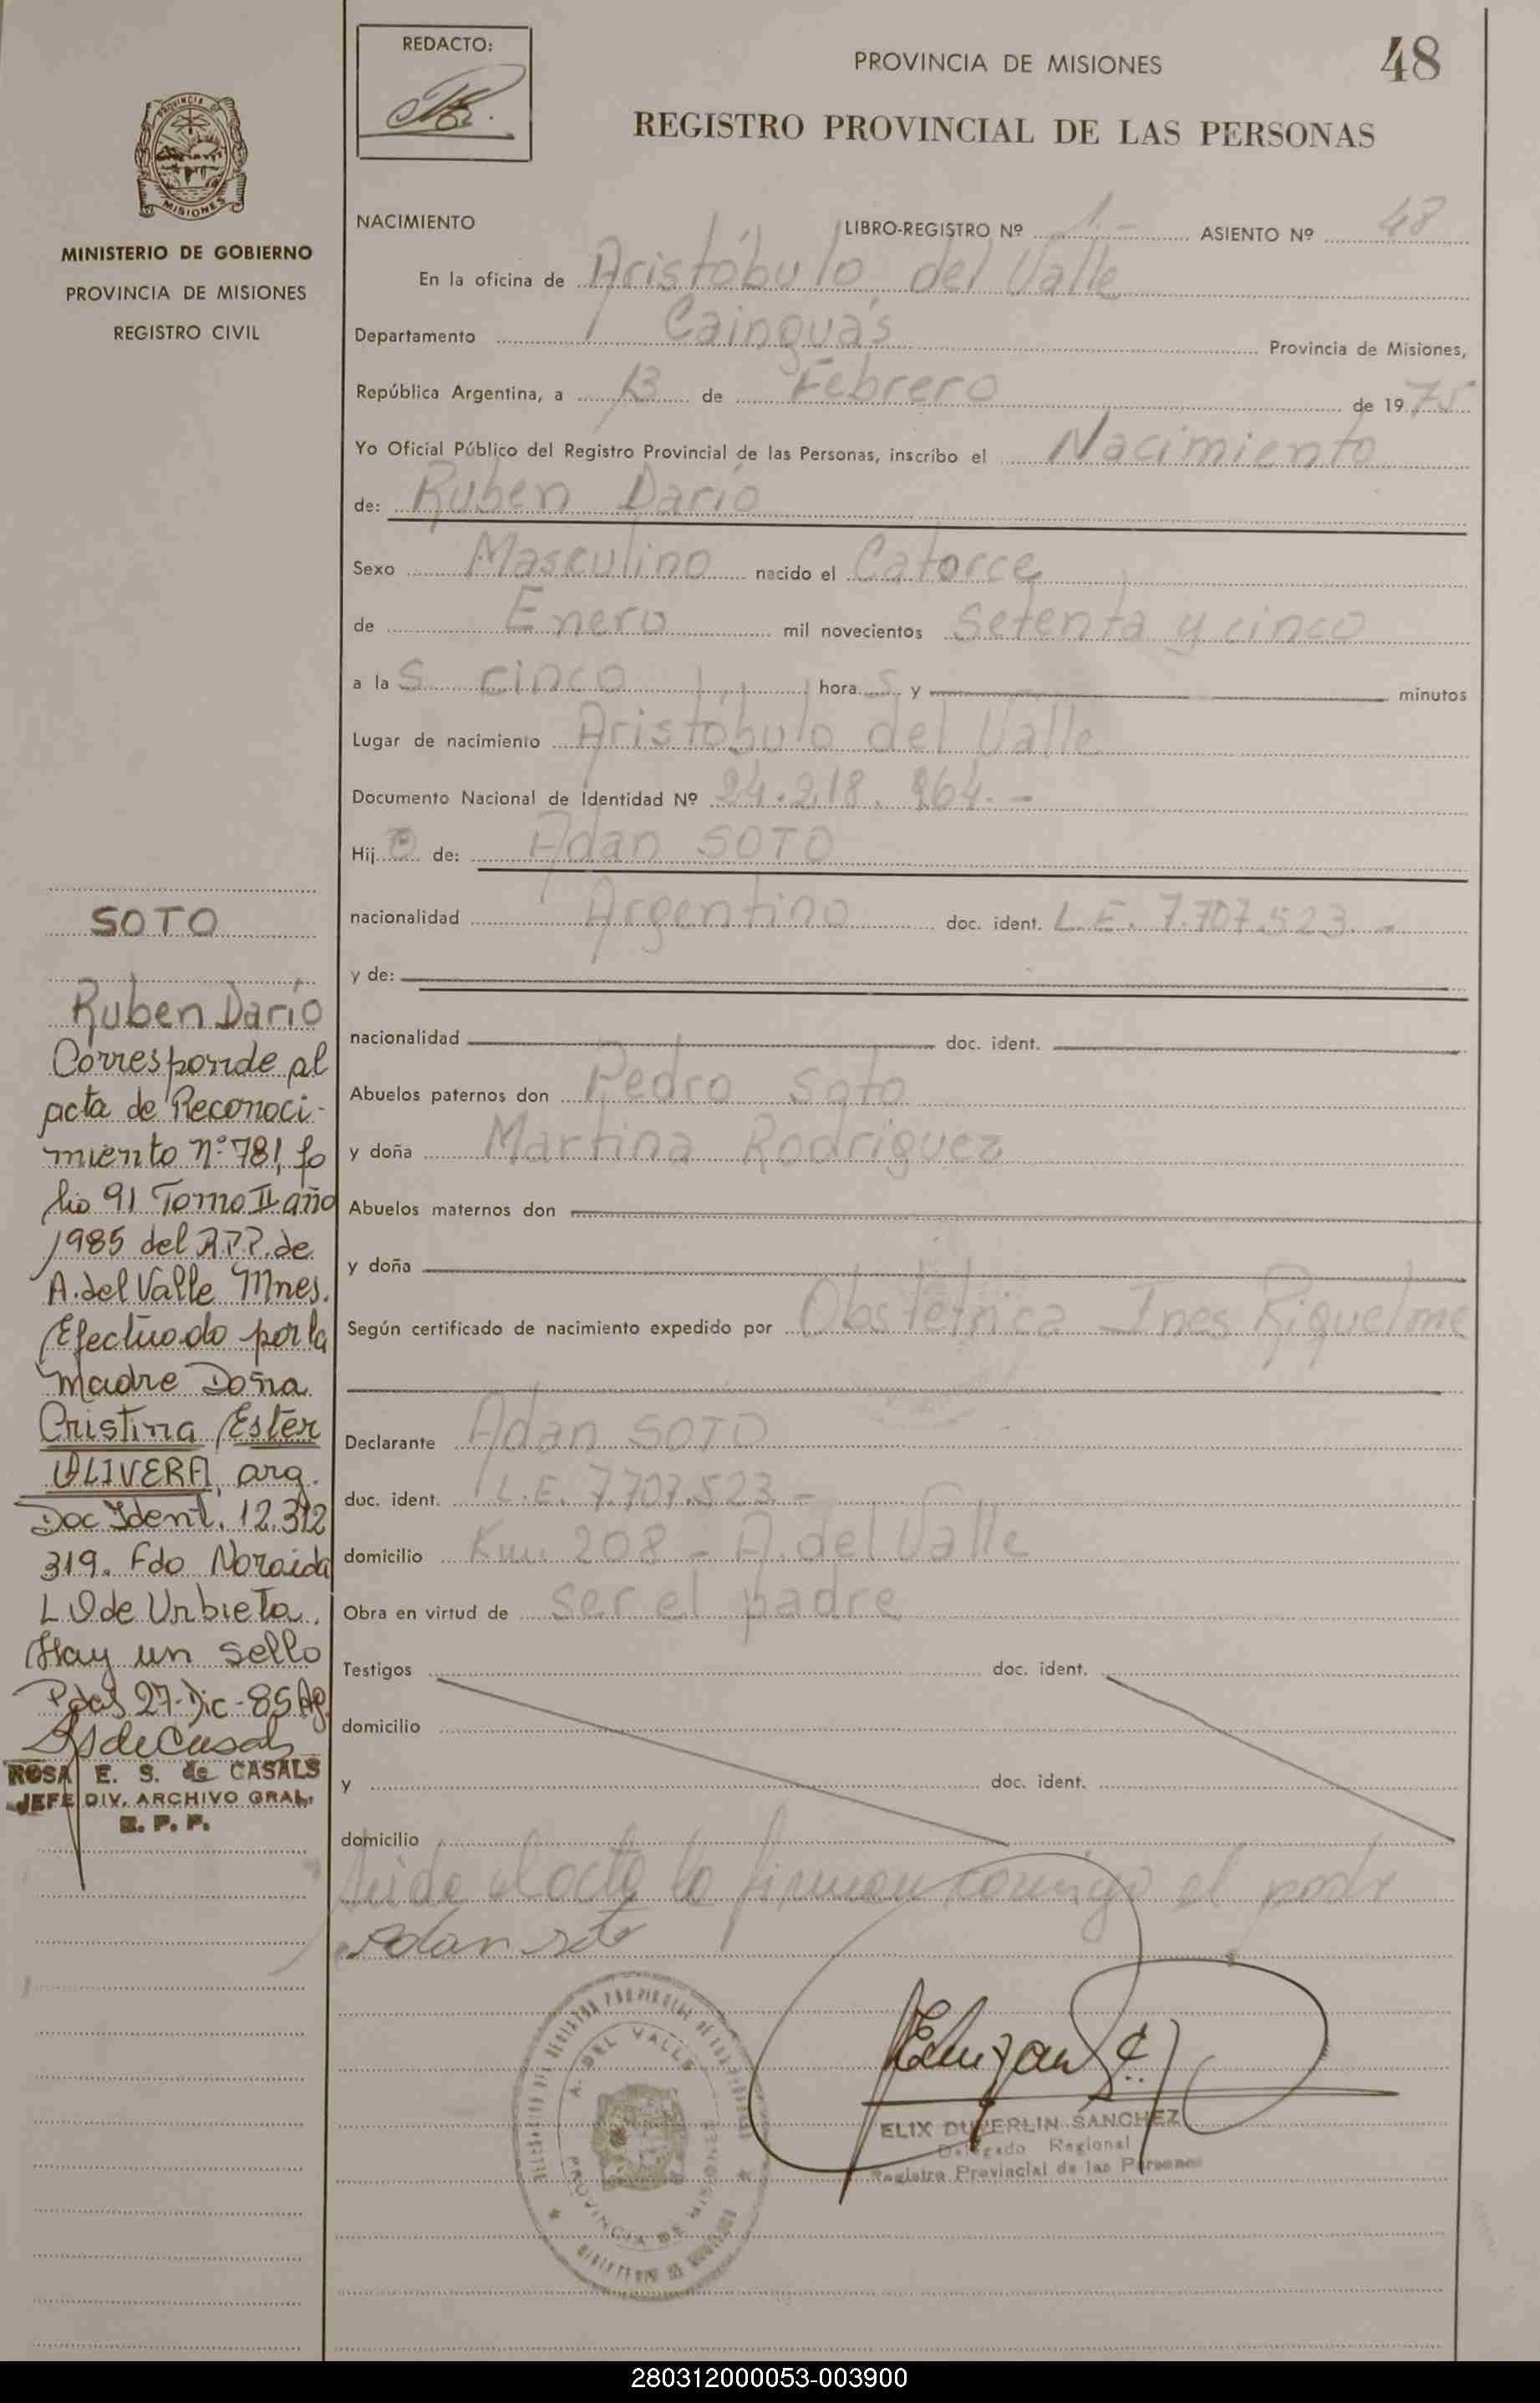 REDACTO:
PROVINCIA DE MISIONES
48
REGISTRO PROVINCIAL DE LAS PERSONAS
PROVINCIA DE
MISIONES
MINISTERIO DE GOBIERNO
PROVINCIA DE MISIONES
REGISTRO CIVIL
NACIMIENTO LIBRO-REGISTRO Nº 1.- ASIENTO Nº 48
En la oficina de Aristóbulo del Valle
Departamento Cainguás Provincia de Misiones,
República Argentina, a 13 de Febrero de 1975
Yo Oficial Público del Registro Provincial de las Personas, inscribo el Nacimiento
de: Ruben Darío
Sexo Masculino nacido el Catorce
de Enero mil novecientos setenta y cinco
a las cinco horas y minutos
Lugar de nacimiento Aristóbulo del Valle
Documento Nacional de Identidad Nº 24.218.964.-
Hijo de: Adan SOTO
nacionalidad Argentino doc. ident. L.E. 7.707.523.-
y de:
nacionalidad doc. ident.
Abuelos paternos don Pedro Soto
y doña Martina Rodriguez
Abuelos maternos don
y doña
Según certificado de nacimiento expedido por Obstétrica Ines Riquelme
Declarante Adan SOTO
doc. ident. L.E. 7.707.523-
domicilio Km. 208 - A. del Valle
Obra en virtud de ser el padre
Testigos doc. ident.
domicilio
y doc. ident.
domicilio
leido el acta la firman conmigo el padre
Adan Soto
SOTO
Ruben Darío
Corresponde al
acta de Reconoci-
miento nº 781, fo
lio 91 Tomo II año
1985 del R.P.P. de
A. del Valle Mnes.
Efectuado por la
madre Doña
Cristina Ester
OLIVERA, arg.
Doc Ident. 12.312
319. Fdo Noraida
L O de Urbieta.
Hay un sello
Pdas 27-Dic-85
ROSA E. S. de CASALS
JEFE DIV. ARCHIVO GRAL.
R. P. P.
A. DEL VALLE
PROVINCIA DE MISIONES
ELIX DUVERLIN SANCHEZ
Delegado Regional
Registro Provincial de las Personas
280312000053-003900